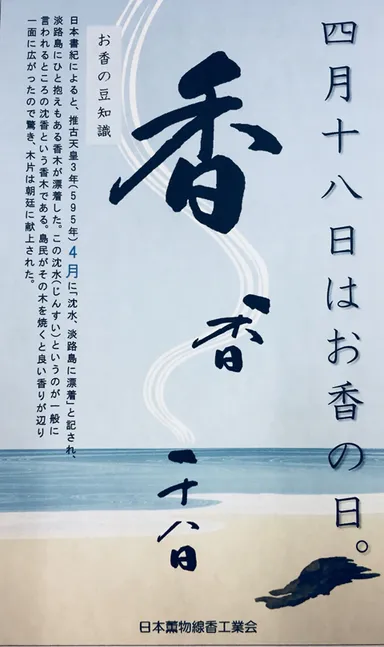 四月十八日はお香の日。
香
香
一十八日
お香の豆知識
日本書紀によると、推古天皇3年(595年)4月に「沈水、淡路島に漂着」と記され、
淡路島にひと抱えもある香木が漂着した。この沈水(じんすい)というのが一般に
言われるところの沈香という香木である。島民がその木を焼くと良い香りが辺り
一面に広がったので驚き、木片は朝廷に献上された。
日本薫物線香工業会